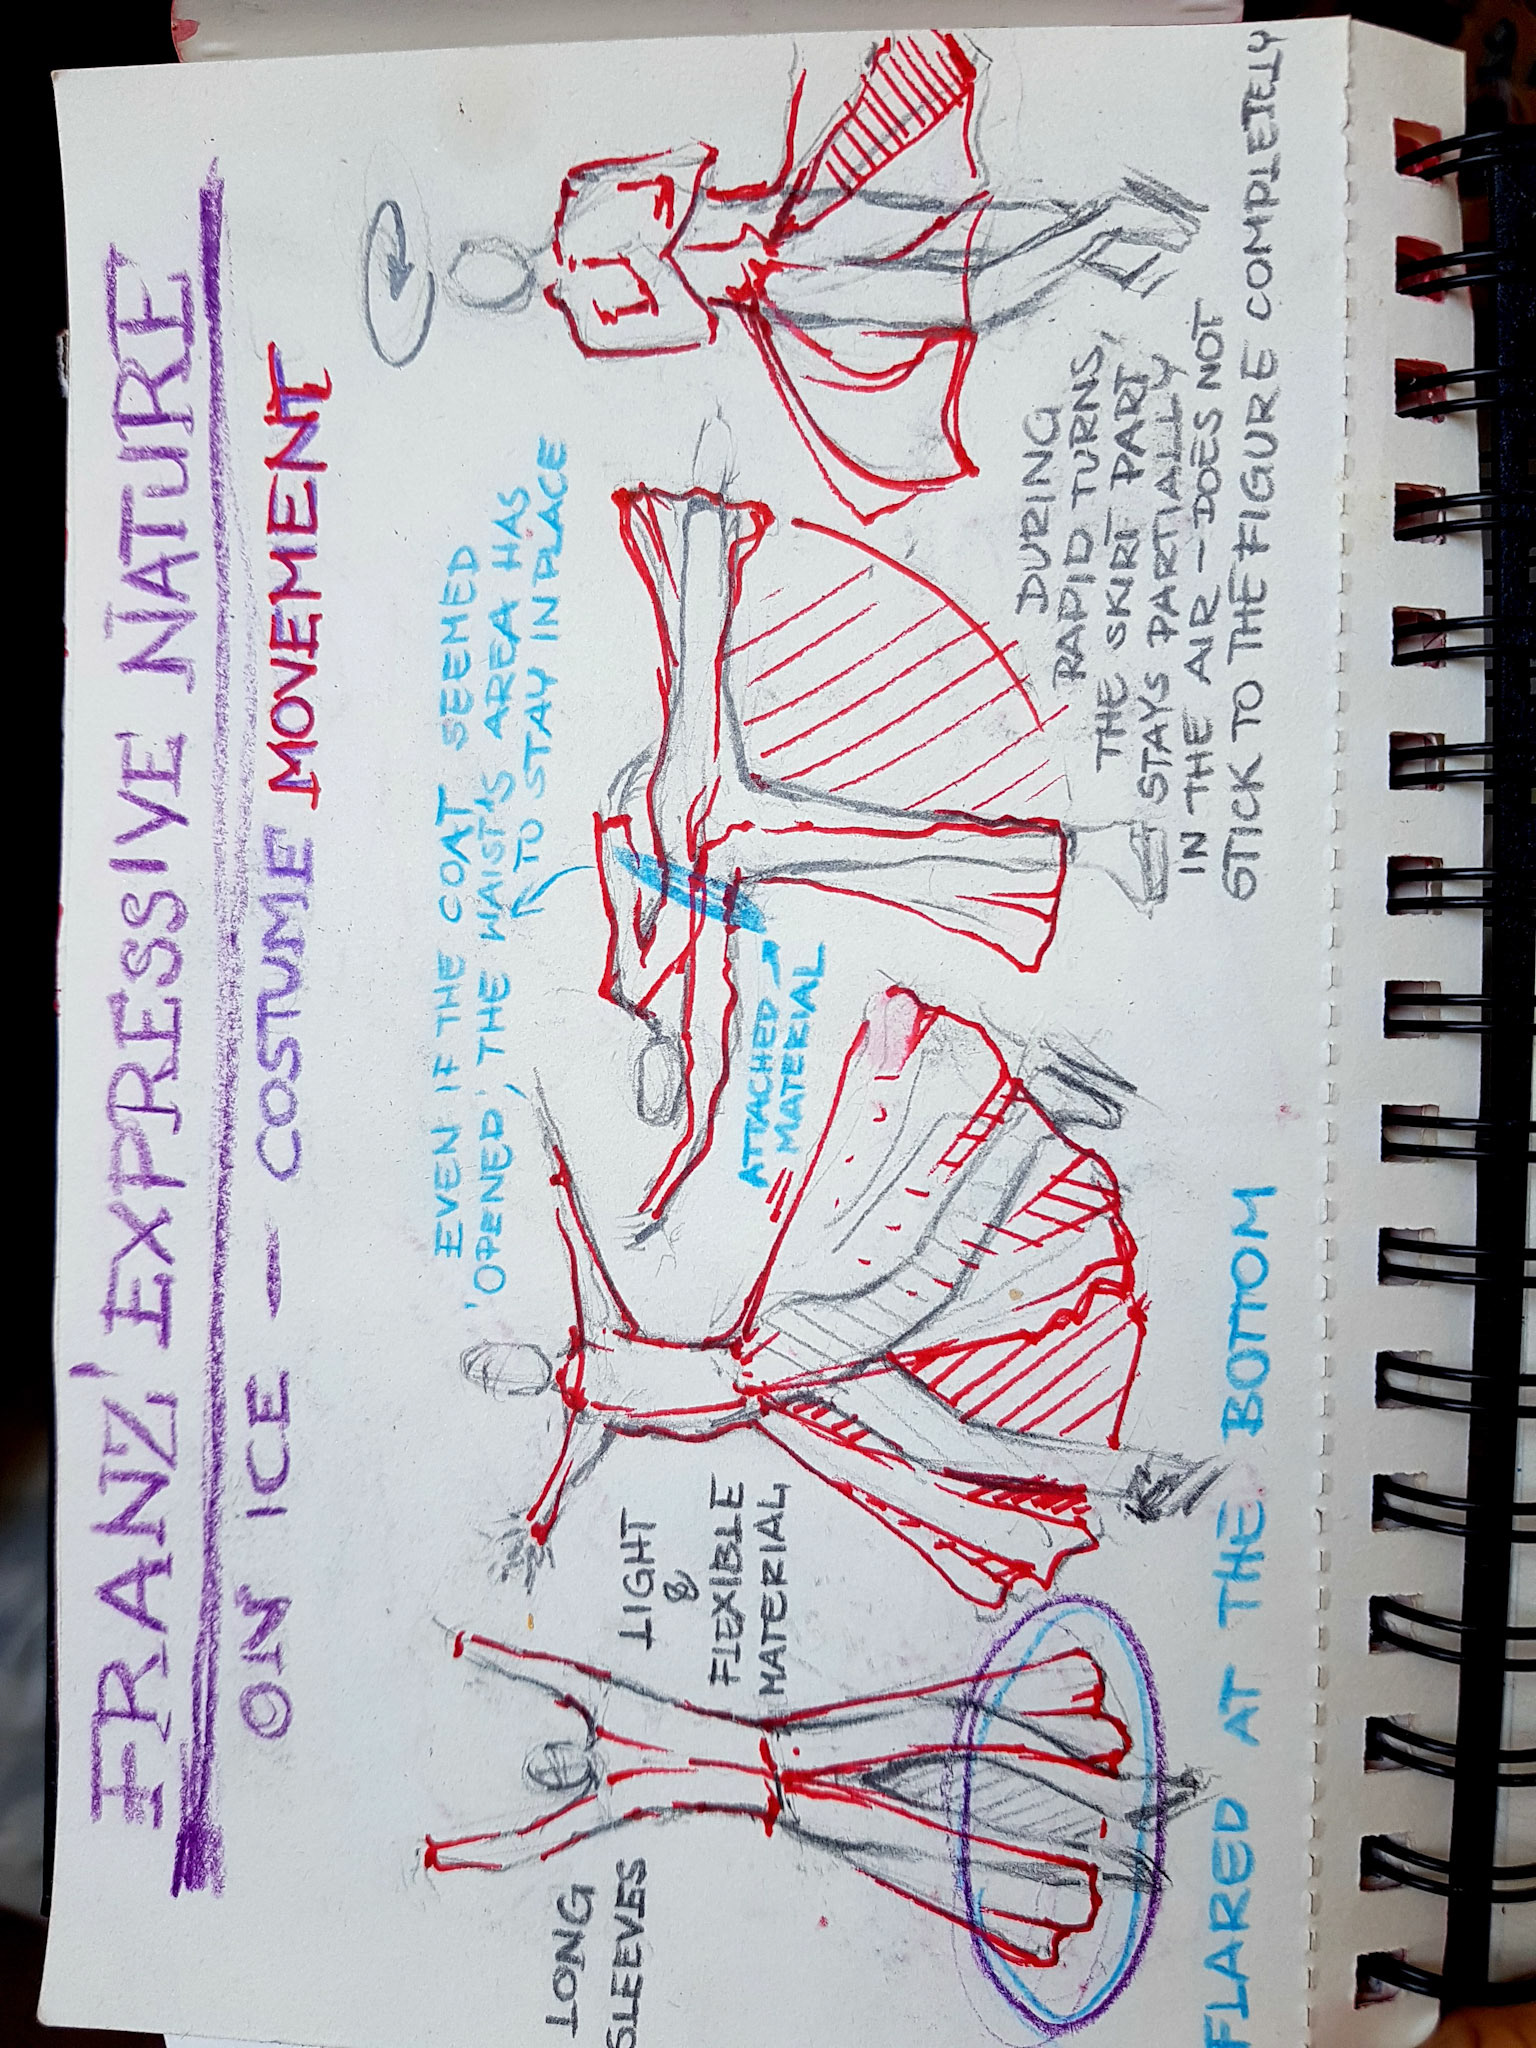 FRANZ' EXPRESSIVE NATURE
ON ICE — COSTUME MOVEMENT
EVEN IF THE COAT SEEMED
'OPENED', THE WAIST'S AREA HAS
TO STAY IN PLACE
LONG
SLEEVES
LIGHT
&
FLEXIBLE
MATERIAL
ATTACHED
MATERIAL
DURING
RAPID TURNS,
THE SKIRT PART
STAYS PARTIALLY
IN THE AIR — DOES NOT
STICK TO THE FIGURE COMPLETELY
FLARED AT THE BOTTOM